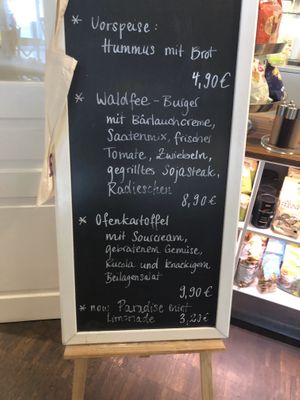 * Vorspeise:
Hummus mit Brot
4,90€
* Waldfee-Burger
mit Bärlauchcreme,
Saatenmix, frischer
Tomate, Zwiebeln,
gegrilltes Sojasteak,
Radieschen
8,90€
* Ofenkartoffel
mit Sourcream,
gebratenem Gemüse,
Rucola und knackigem
Beilagensalat
9,90€
* new: Paradise mint
Limonade 3,20€